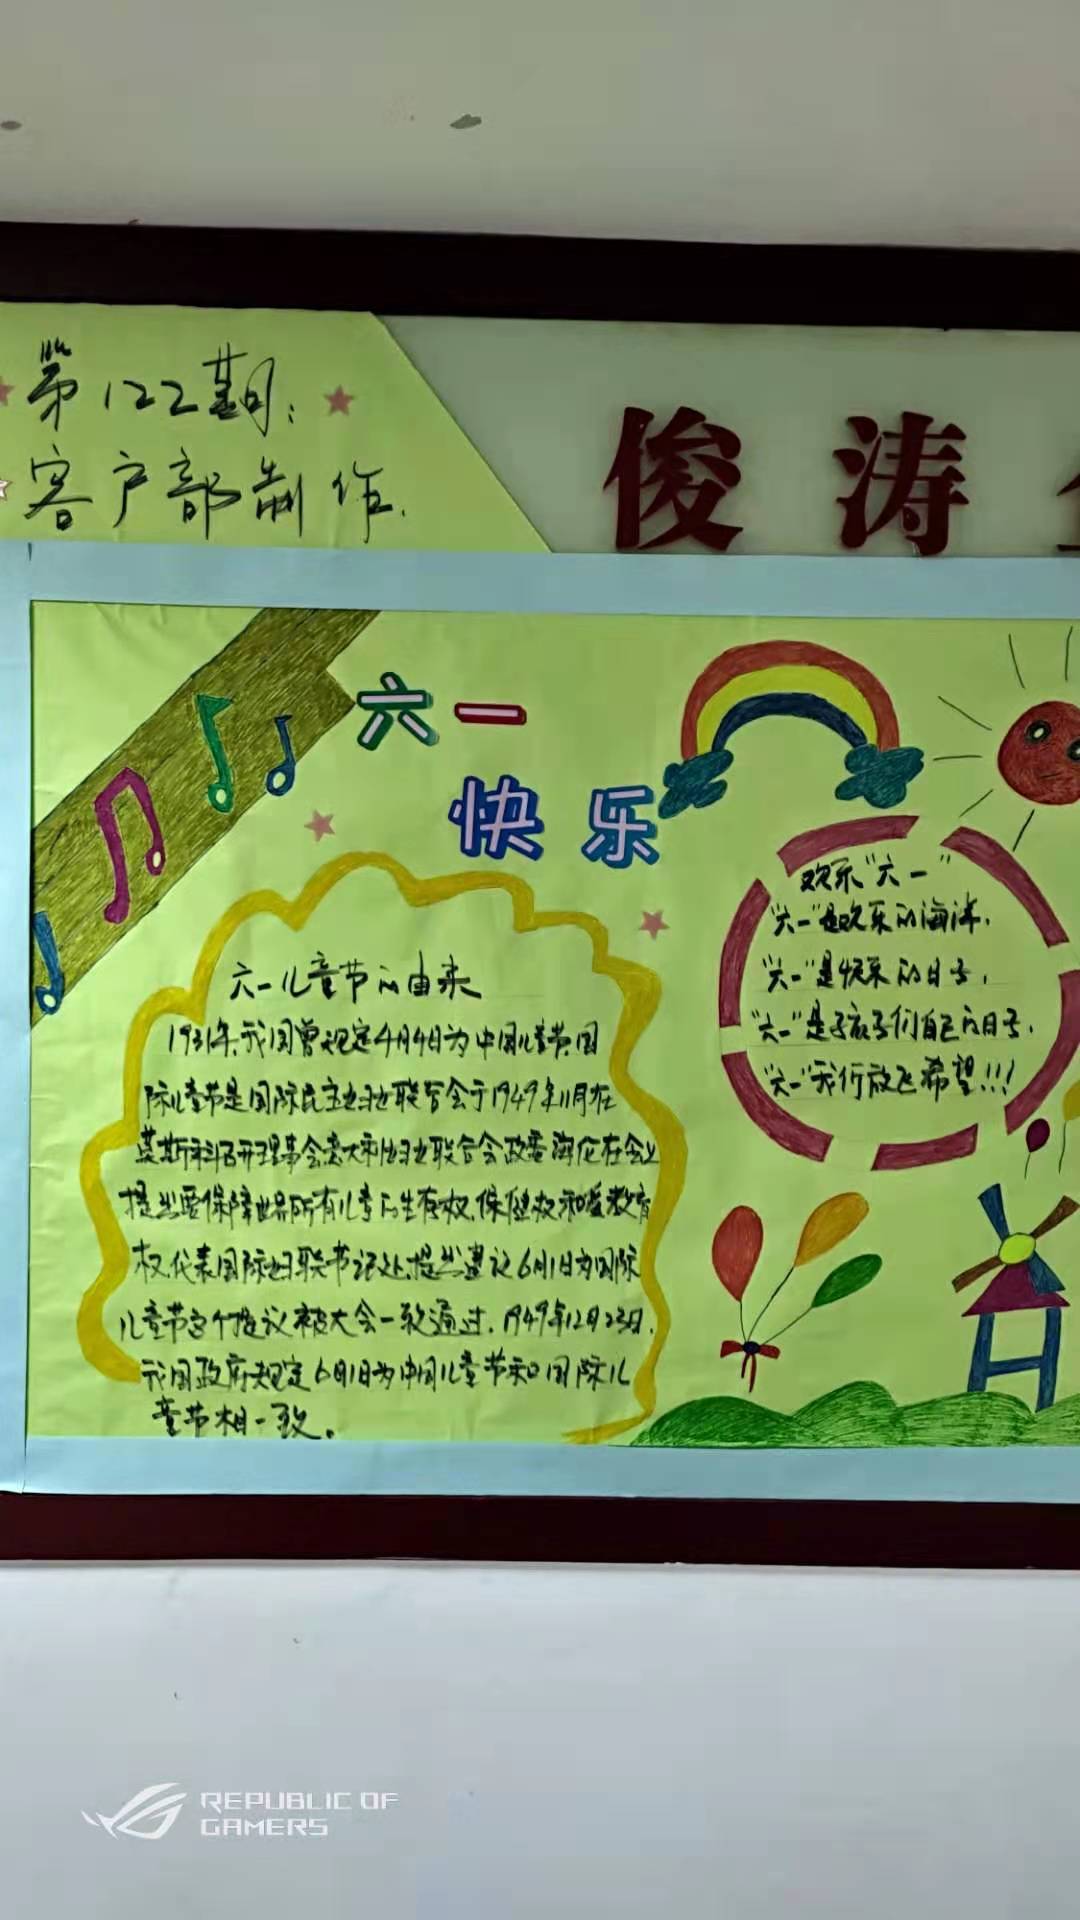 第122期:
客户部制作.
俊涛
六一
快乐
欢乐“六一”
“六一”是欢乐的海洋.
“六一”是快乐的日子,
“六一”是孩子们自己的日子,
“六一”我们放飞希望!!!
六一儿童节的由来
1931年,我国曾规定4月4日为中国儿童节,国
际儿童节是国际民主妇女联合会于1949年11月在
莫斯科召开理事会意大利妇女联合会政委 在会上
提出要保障世界所有儿童的生存权,保健权和受教育
权代表国际妇联书记处提出建议6月1日为国际
儿童节这个提议被大会一致通过.1949年12月23日,
我国政府规定6月1日为中国儿童节和国际儿
童节相一致。
REPUBLIC OF
GAMERS